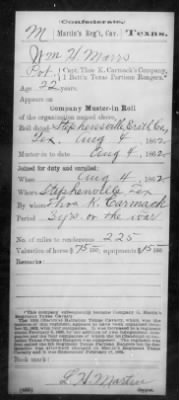 Confederate.
M | Martin's Reg't, Cav. | Texas.
Wm H. Marrs
Pvt., Capt. Thos. K. Carmack's Company,
1 Batt'n Texas Partisan Rangers.*
Age 22 years.
Appears on
Company Muster-in Roll
of the organization named above,
Roll dated Stephensville, Erath Co,
Tex. Aug 4, 1862
Muster-in to date Aug 4, 1862
Joined for duty and enrolled:
When Aug 4, 1862
Where Stephenville Tex
By whom Thos K. Carmack
Period 3 yrs. or the war
No. of miles to rendezvous 225
Valuation of horse $75 100 equipments $15 100
Remarks:
*This company subsequently became Company
Regiment Texas Cavalry.
L H Martin
Copyist.